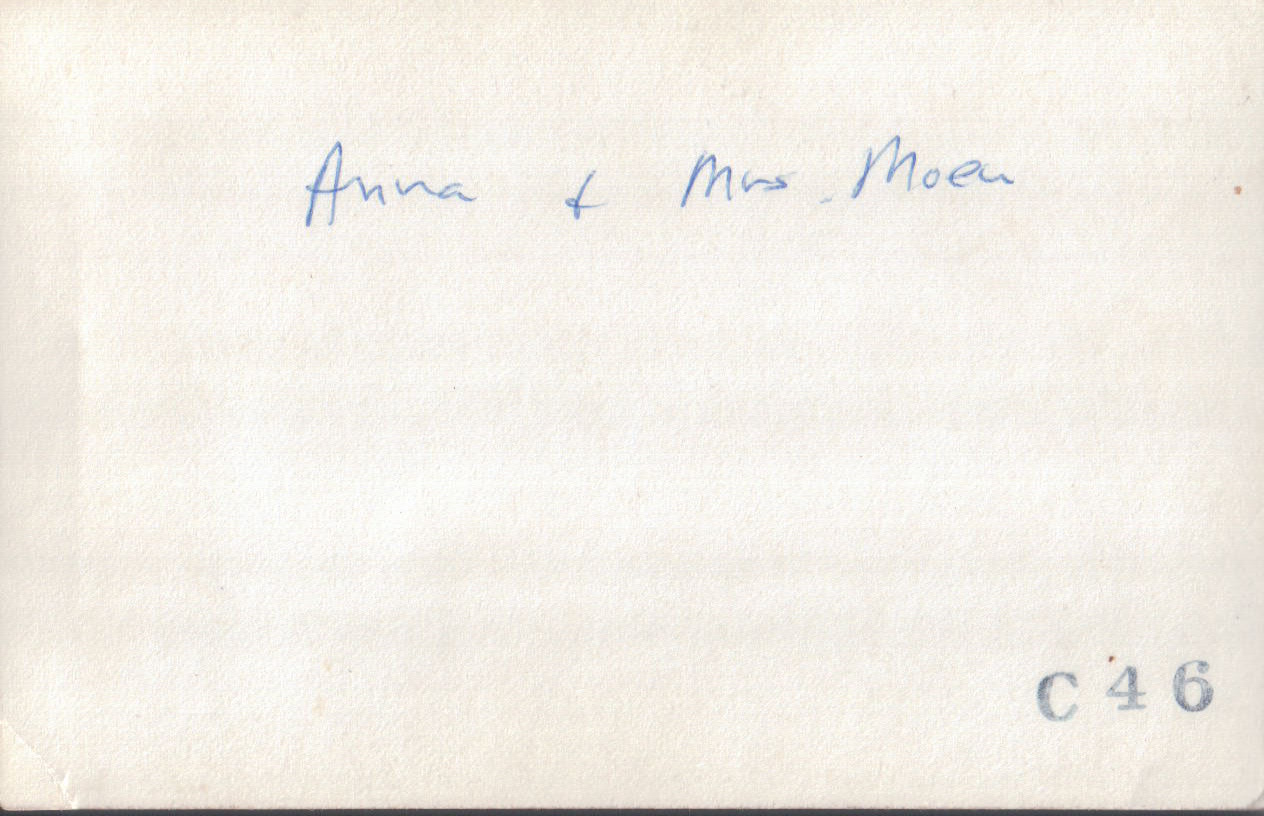 Anna & Mrs. Moen
C46